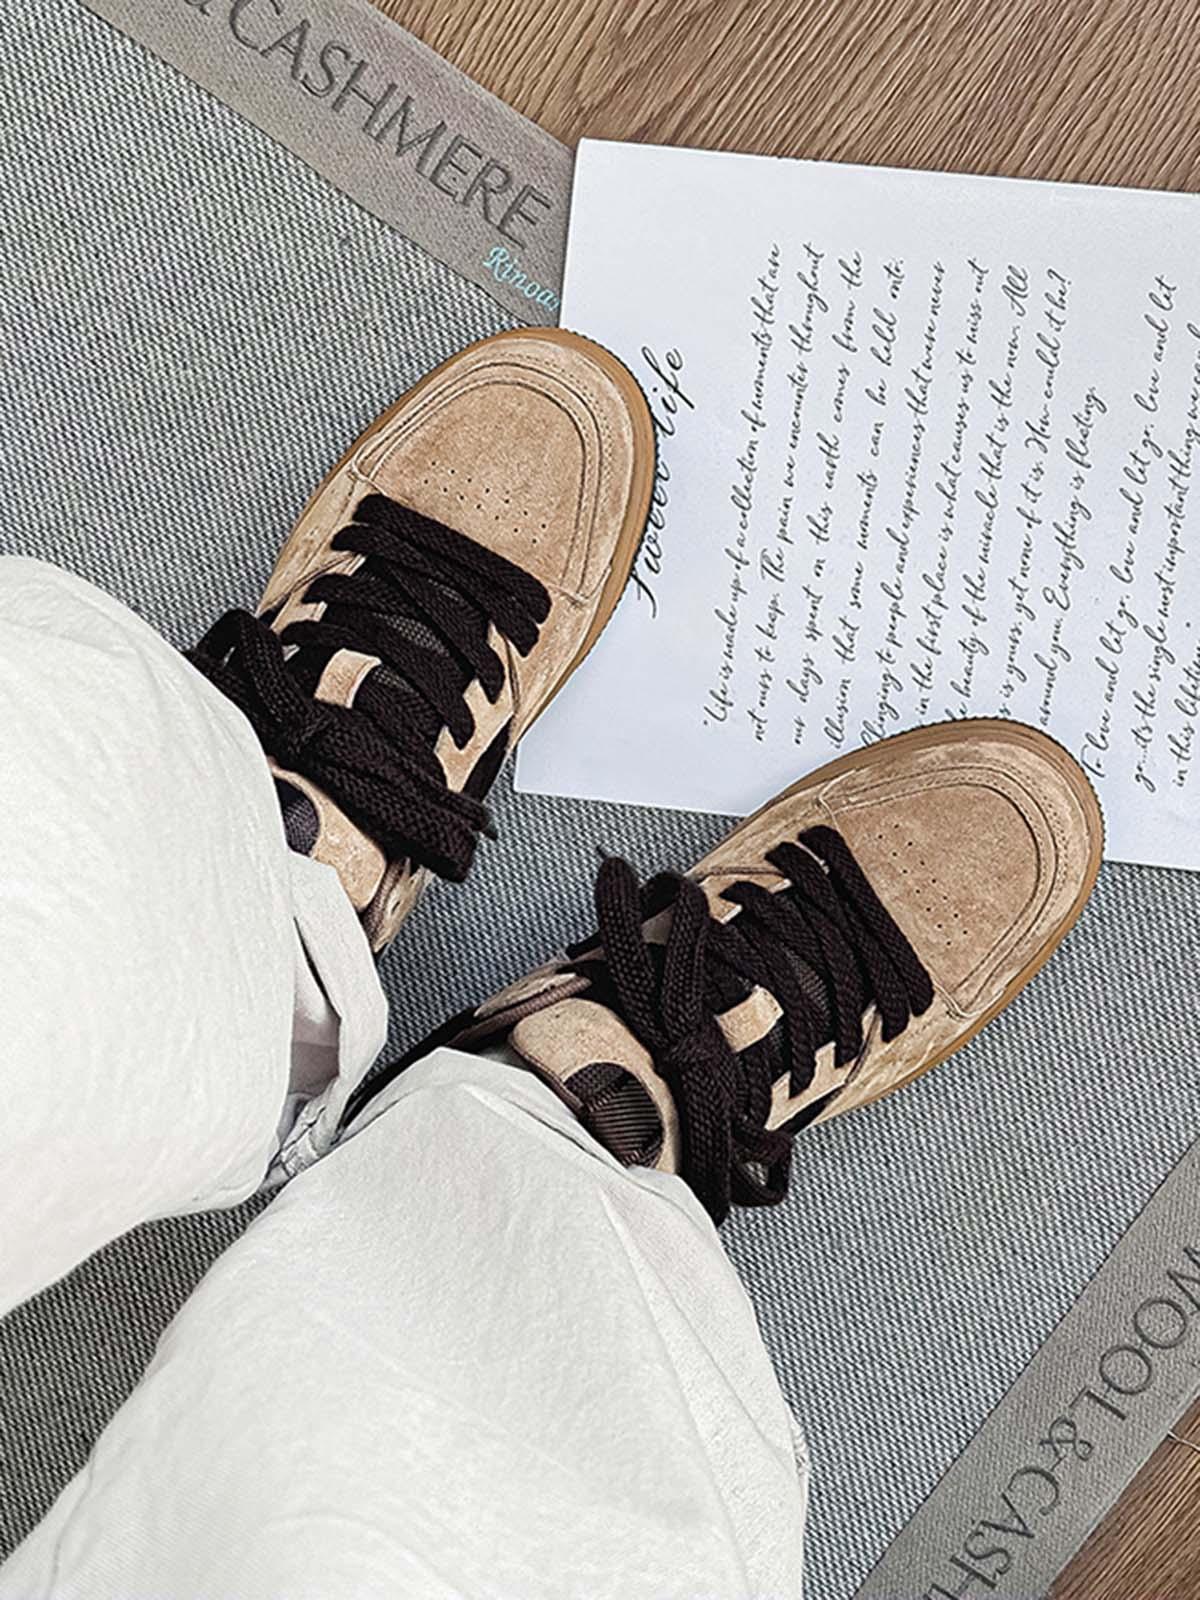 & CASHMERE
Rinoa
life
"Life is made up of a collection of moments that are
not ours to keep. The pain we encounter throughout
our days spent on this earth comes from the
illusion that some moments can be held onto.
Clinging to people and experiences that were never
in the first place is what causes us to miss out
beauty of the miracle that is the now. All
is yours, yet none of it is. How could it be?
around you. Everything is fleeting.
To love and let go, love and let go, love and let
go...it's the single most important thing we
in this lifetime
WOOL & CASH